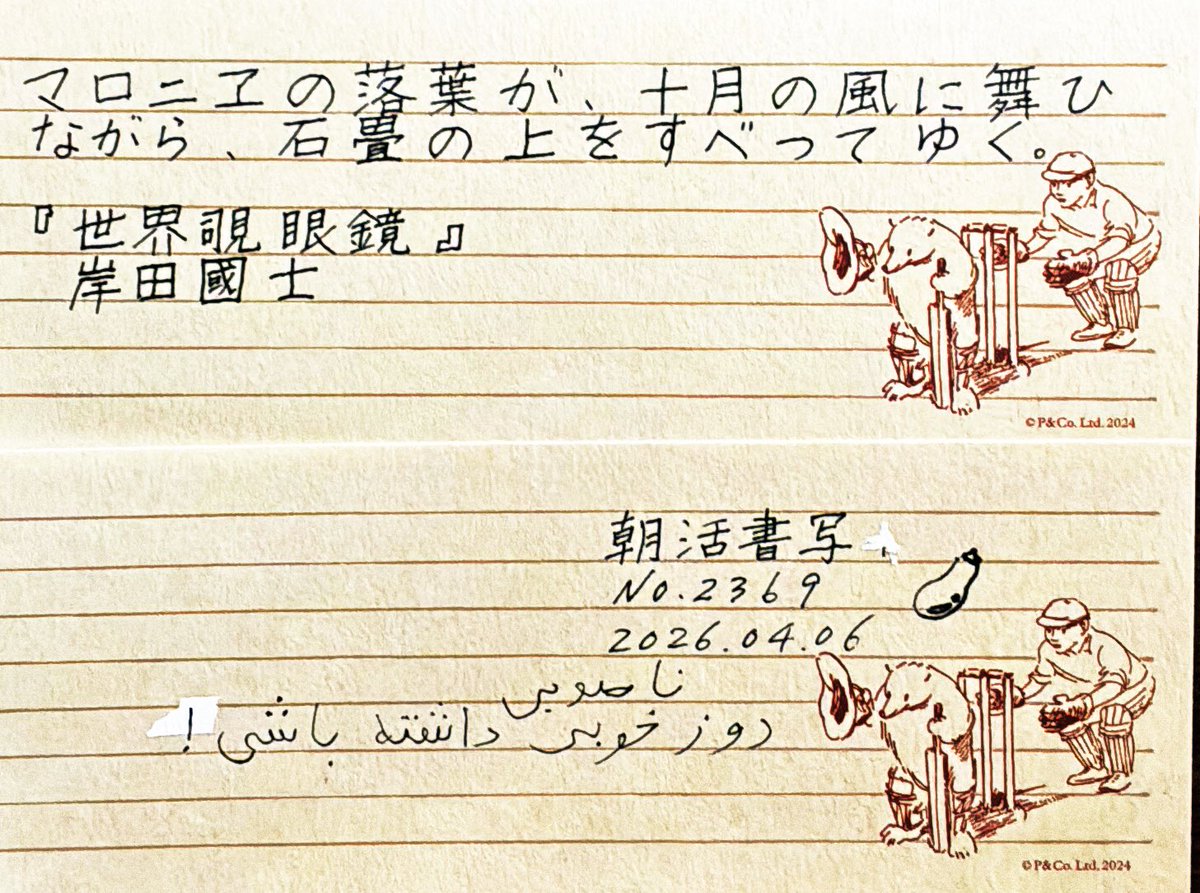 マロニヱの落葉が、十月の風に舞ひ
ながら、石畳の上をすべってゆく。
『世界覗眼鏡』
岸田國士
© P& Co. Ltd. 2024
朝活書写
No.2369
2026.04.06
روز خوبی داشته باشی !
© P& Co. Ltd. 2024